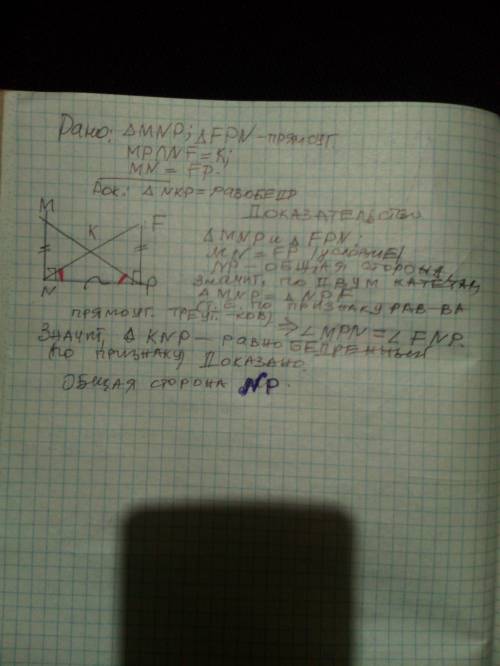 Дано: △MNP; △FPN - прямоуг.
MP∩NF = K;
MN = FP.
Док: △NKP = равнобедр
Доказательство
M
F
K
N
P
△MNP и △FPN;
MN = FP /условие/
NP - общая сторона,
значит, по двум катетам
△MNP = △NPF
(т.е. по признаку рав-ва
прямоуг. треуг-ков) ⇒ ∠MPN = ∠FNP.
Значит, △KNP - равнобедренный
по признаку. Доказано.
Общая сторона NP.